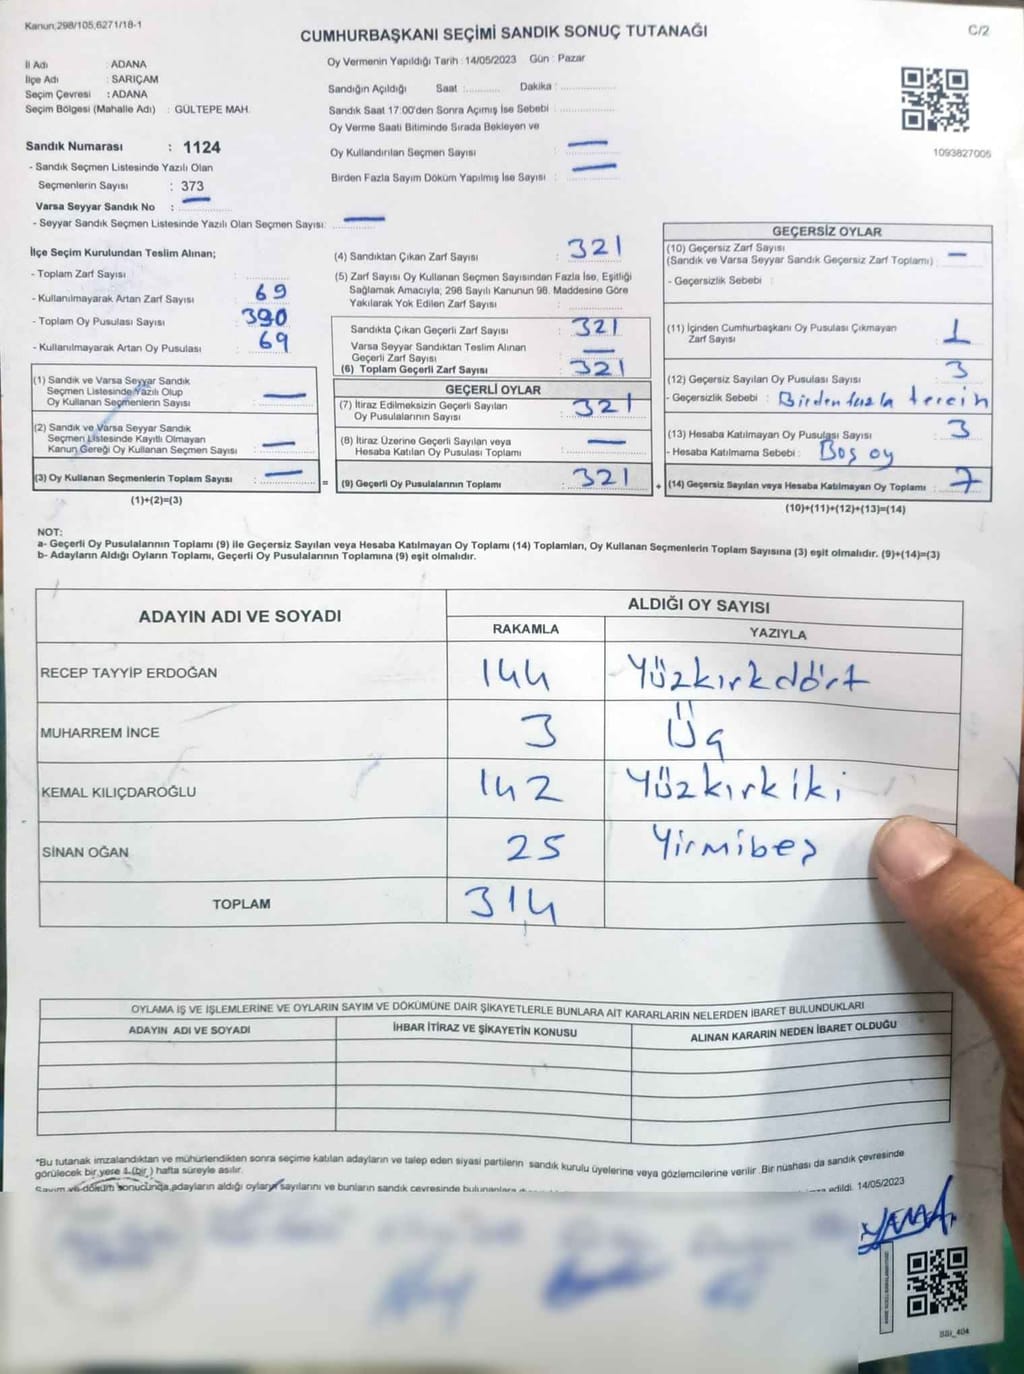 Kanun,298/105,6271/18-1
CUMHURBAŞKANI SEÇİMİ SANDIK SONUÇ TUTANAĞI
C/2
İl Adı : ADANA
İlçe Adı : SARIÇAM
Seçim Çevresi : ADANA
Seçim Bölgesi (Mahalle Adı) : GÜLTEPE MAH.
Sandık Numarası : 1124
- Sandık Seçmen Listesinde Yazılı Olan
Seçmenlerin Sayısı : 373
Varsa Seyyar Sandık No : —
- Seyyar Sandık Seçmen Listesinde Yazılı Olan Seçmen Sayısı: —
Oy Vermenin Yapıldığı Tarih : 14/05/2023 Gün : Pazar
Sandığın Açıldığı Saat :........... Dakika :..............
Sandık Saat 17:00'den Sonra Açımış İse Sebebi :..............
Oy Verme Saati Bitiminde Sırada Bekleyen ve
Oy Kullandırılan Seçmen Sayısı : —
Birden Fazla Sayım Döküm Yapılmış İse Sayısı : —
1093827005
İlçe Seçim Kurulundan Teslim Alınan;
- Toplam Zarf Sayısı :
- Kullanılmayarak Artan Zarf Sayısı : 69
- Toplam Oy Pusulası Sayısı : 390
- Kullanılmayarak Artan Oy Pusulası : 69
(1) Sandık ve Varsa Seyyar Sandık
Seçmen Listesinde Yazılı Olup
Oy Kullanan Seçmenlerin Sayısı : —
(2) Sandık ve Varsa Seyyar Sandık
Seçmen Listesinde Kayıtlı Olmayan
Kanun Gereği Oy Kullanan Seçmen Sayısı : —
(3) Oy Kullanan Seçmenlerin Toplam Sayısı : —
(1)+(2)=(3)
=
(4) Sandıktan Çıkan Zarf Sayısı : 321
(5) Zarf Sayısı Oy Kullanan Seçmen Sayısından Fazla İse, Eşitliği
Sağlamak Amacıyla; 298 Sayılı Kanunun 98. Maddesine Göre
Yakılarak Yok Edilen Zarf Sayısı :
Sandıkta Çıkan Geçerli Zarf Sayısı : 321
Varsa Seyyar Sandıktan Teslim Alınan
Geçerli Zarf Sayısı : —
(6) Toplam Geçerli Zarf Sayısı : 321
GEÇERLİ OYLAR
(7) İtiraz Edilmeksizin Geçerli Sayılan
Oy Pusulalarının Sayısı : 321
(8) İtiraz Üzerine Geçerli Sayılan veya
Hesaba Katılan Oy Pusulası Toplamı : —
(9) Geçerli Oy Pusulalarının Toplamı : 321
+
GEÇERSİZ OYLAR
(10) Geçersiz Zarf Sayısı
(Sandık ve Varsa Seyyar Sandık Geçersiz Zarf Toplamı) : —
- Geçersizlik Sebebi :
(11) İçinden Cumhurbaşkanı Oy Pusulası Çıkmayan
Zarf Sayısı : 1
(12) Geçersiz Sayılan Oy Pusulası Sayısı : 3
- Geçersizlik Sebebi : Birden fazla tercih
(13) Hesaba Katılmayan Oy Pusulası Sayısı : 3
- Hesaba Katılmama Sebebi : Boş oy
(14) Geçersiz Sayılan veya Hesaba Katılmayan Oy Toplamı : 7
(10)+(11)+(12)+(13)=(14)
NOT:
a- Geçerli Oy Pusulalarının Toplamı (9) ile Geçersiz Sayılan veya Hesaba Katılmayan Oy Toplamı (14) Toplamları, Oy Kullanan Seçmenlerin Toplam Sayısına (3) eşit olmalıdır. (9)+(14)=(3)
b- Adayların Aldığı Oyların Toplamı, Geçerli Oy Pusulalarının Toplamına (9) eşit olmalıdır.
ADAYIN ADI VE SOYADI ALDIĞI OY SAYISI
RAKAMLA YAZIYLA
RECEP TAYYİP ERDOĞAN 144 Yüzkırkdört
MUHARREM İNCE 3 Üç
KEMAL KILIÇDAROĞLU 142 Yüzkırkiki
SİNAN OĞAN 25 Yirmibeş
TOPLAM 314
OYLAMA İŞ VE İŞLEMLERİNE VE OYLARIN SAYIM VE DÖKÜMÜNE DAİR ŞİKAYETLERLE BUNLARA AİT KARARLARIN NELERDEN İBARET BULUNDUKLARI
ADAYIN ADI VE SOYADI İHBAR İTİRAZ VE ŞİKAYETİN KONUSU ALINAN KARARIN NEDEN İBARET OLDUĞU
*Bu tutanak imzalandıktan ve mühürlendikten sonra seçime katılan adayların ve talep eden siyasi partilerin sandık kurulu üyelerine veya gözlemcilerine verilir. Bir nüshası da sandık çevresinde
görülecek bir yere 1 (bir) hafta süreyle asılır.
Sayım ve döküm sonucunda adayların aldığı oyların sayılarını ve bunların sandık çevresinde edildi. 14/05/2023
BSI_404